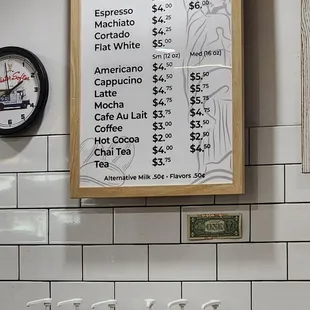 Espresso $4.00 $6.00
Machiato $4.25
Cortado $4.25
Flat White $5.00
Sm (12 oz) Med (16 oz)
Americano $4.50
Cappucino $4.75 $5.50
Latte $4.75 $5.75
Mocha $4.75 $5.75
Cafe Au Lait $3.75 $4.75
Coffee $3.00 $3.50
Hot Cocoa $2.00 $2.50
Chai Tea $4.75 $4.50
Tea $3.75
Alternative Milk .50¢ - Flavors .50¢